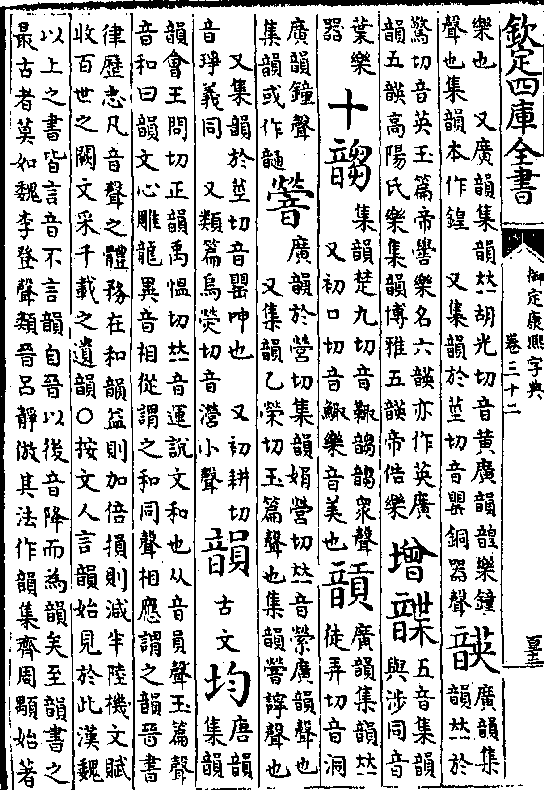 欽定四庫全書
御定康熙字典
卷三十二
樂也 又廣韻集韻𠀤胡光切音黄廣韻韹樂鐘
聲也集韻本作鍠 又集韻於莖切音罌銅器聲
韺
廣韻集
韻𠀤於
驚切音英玉篇帝嚳樂名六韺亦作英廣
韻五韺高陽氏樂集韻博雅五韺帝俈樂
增
五音集韻
與涉同音
葉樂
器
十
集韻楚九切音衆聲
又初口切音鯫樂音美也
廣韻集韻𠀤
徒弄切音洞
廣韻鐘聲
集韻或作
䪯
廣韻於營切集韻娟營切𠀤音縈廣韻聲也
又集韻乙榮切玉篇聲也集韻䪯諻聲也
又集韻於莖切音罌呻也 又初耕切
音琤義同 又類篇烏熒切音瀅小聲
韻
古文
均
唐韻
集韻
韻會王問切正韻禹慍切𠀤音運說文和也从音員聲玉篇聲
音和曰韻文心雕龍異音相從謂之和同聲相應謂之韻晉書
律歷志凡音聲之體務在和韻益則加倍損則減半陸機文賦
收百世之闕文采千載之遺韻○按文人言韻始見於此漢魏
以上之書皆言音不言韻自晉以後音降而為韻矣至韻書之
最古者莫如魏李登聲類晉呂靜倣其法作韻集齊周顒始著